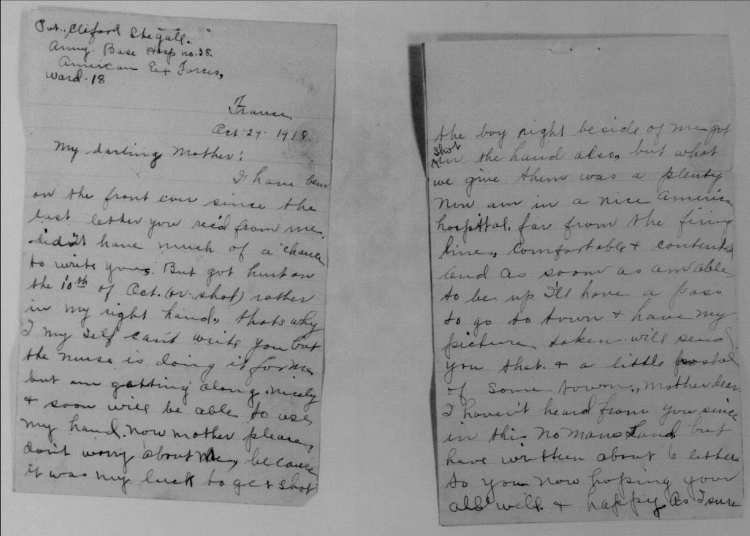 Pvt. Cliford Stegall.
Army Base Hosp no. 38
American Ex Forces,
Ward-18
France
Oct-24-1918
My darling Mother:
I have been
on the front ever since the
last letter you rec'd from me.
didn't have much of a chance
to write you. But got hurt on
the 10th of Oct. (or shot) rather
in my right hand, thats why
I my self can't write you but
the nurse is doing it for me
but am getting along nicely
& soon will be able to use
my hand. now mother please
don't worry about me, because
it was my luck to get shot
the boy right beside of me got
shot in the hand also, but what
we give them was a plenty
Now am in a nice American
hospital. far from the firing
line, comfortable & contented
and as soon as am able
to be up I'll have a pass
to go to town & have my
picture taken will send
you that & a little postal
of some town. Mother dear
I haven't heard from you since
in this no mans Land but
have written about 6 letters
to you. now hoping your
all well & happy As I sure